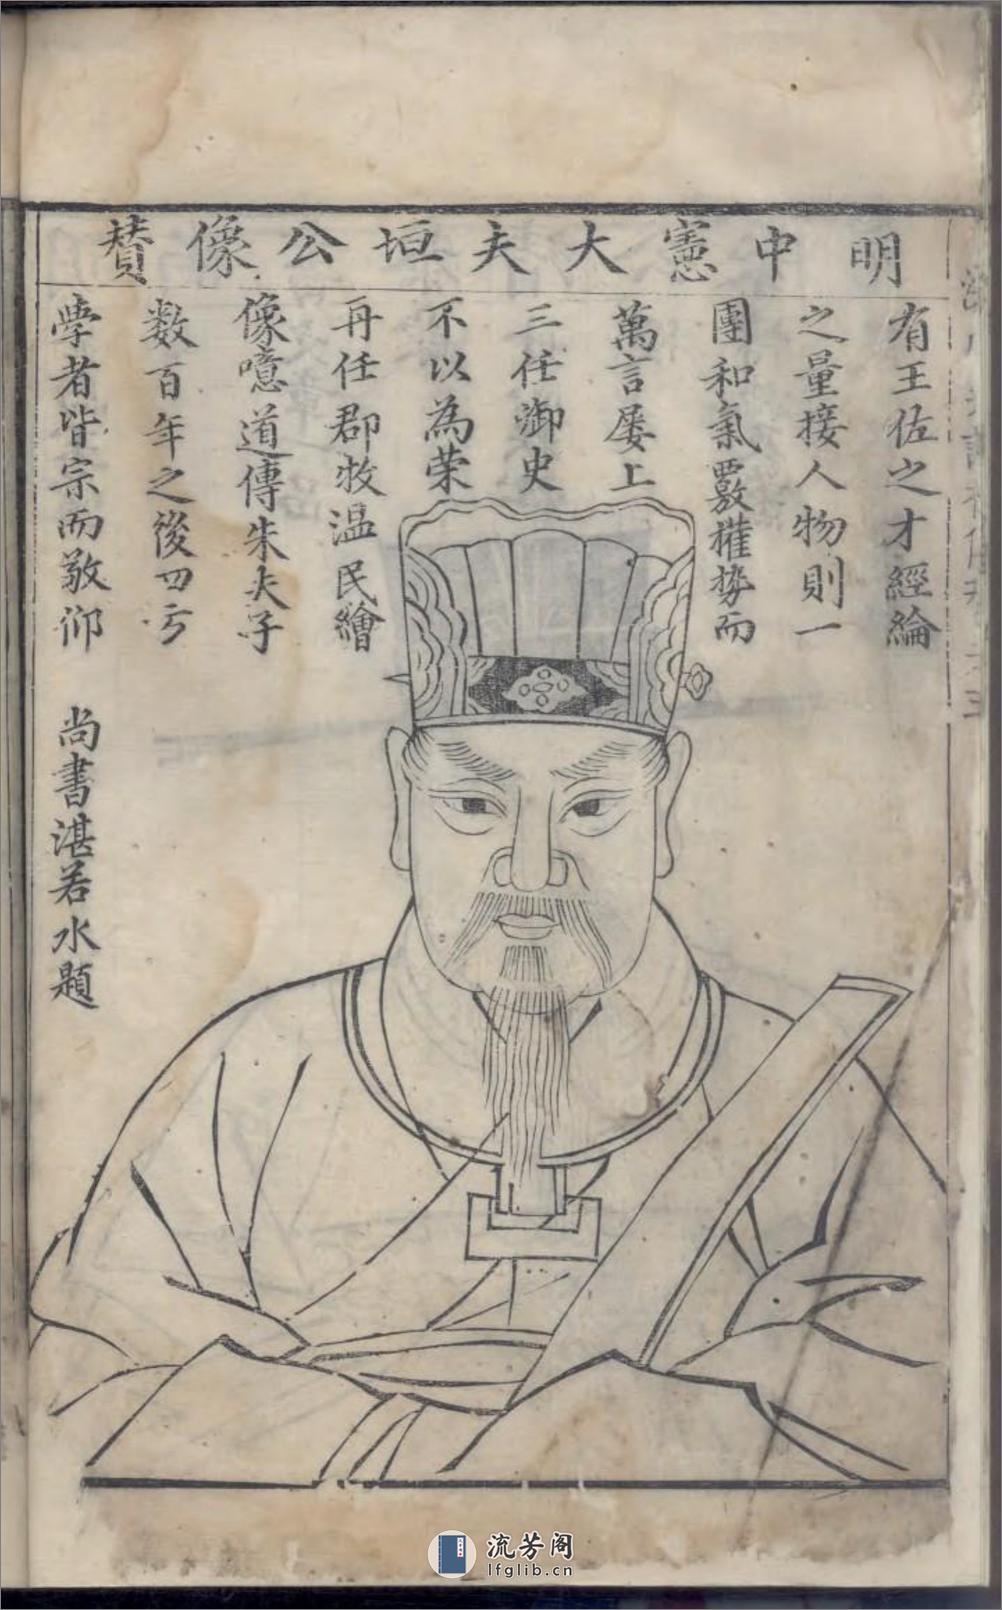 明中憲大夫垣公像贊
有王佐之才經綸
之量接人物則一
團和氣覈權勢而
萬言屡上
三任御史
不以為荣
再任郡牧温民繪
像噫道傳朱夫子
数百年之後四方
學者皆宗而敬仰
尚書湛若水題
流芳阁
lfglib.cn